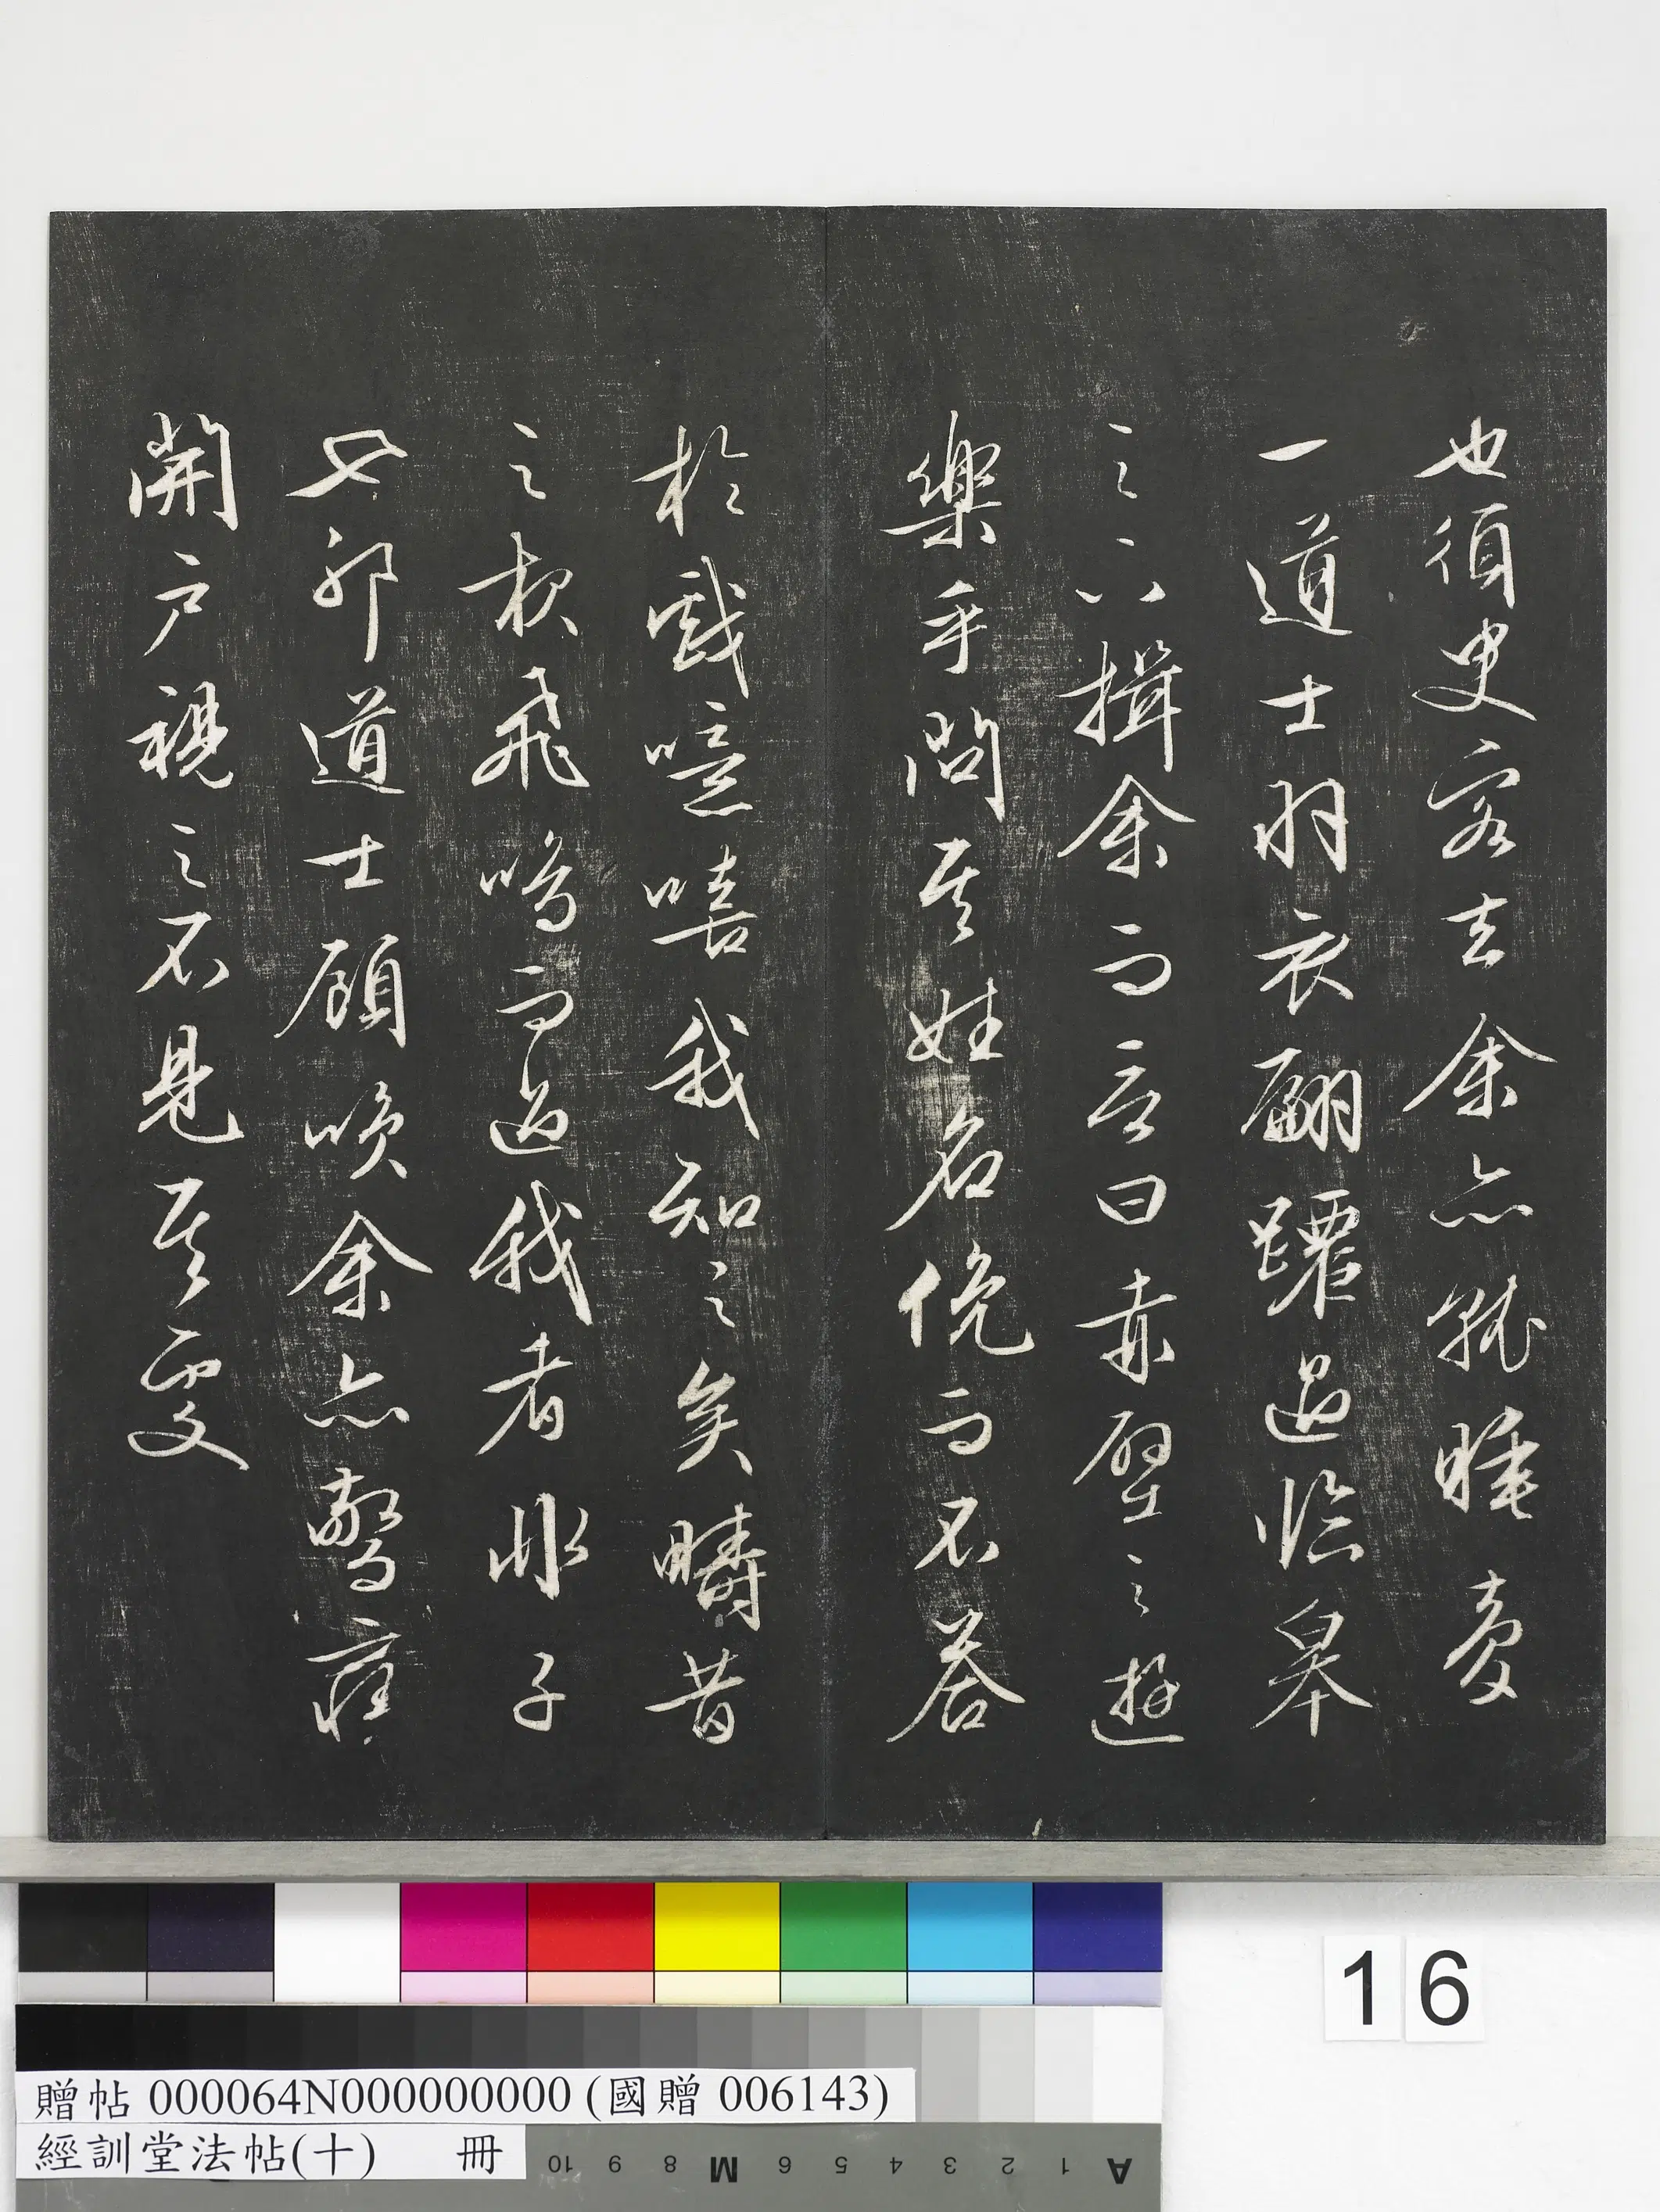 也須臾客去余亦就睡夢
一道士羽衣翩躚過臨皋
之下揖余而言曰赤壁之遊
樂乎問其姓名俛而不答
於戲噫嘻我知之矣疇昔
之夜飛鳴而過我者非子
也邪道士顧咲余亦驚寤
開戶視之不見其處
16
贈帖 000064N000000000 (國贈 006143)
經訓堂法帖(十) 冊
A 1 2 3 4 5 6 M 8 9 10